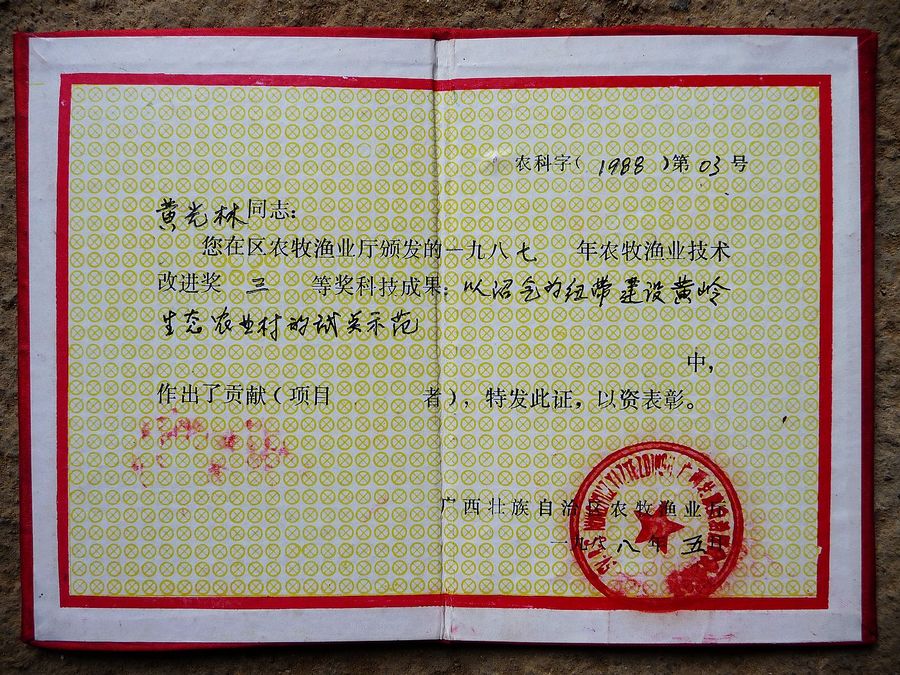 农科字(1988)第03号
黄光林同志:
您在区农牧渔业厅颁发的一九八七 年农牧渔业技术
改进奖 三 等奖科技成果:以沼气为纽带建设黄岭
生态农业村的试点示范
中,
作出了贡献(项目 者),特发此证,以资表彰。
广西壮族自治区农牧渔业厅
一九八八年五月